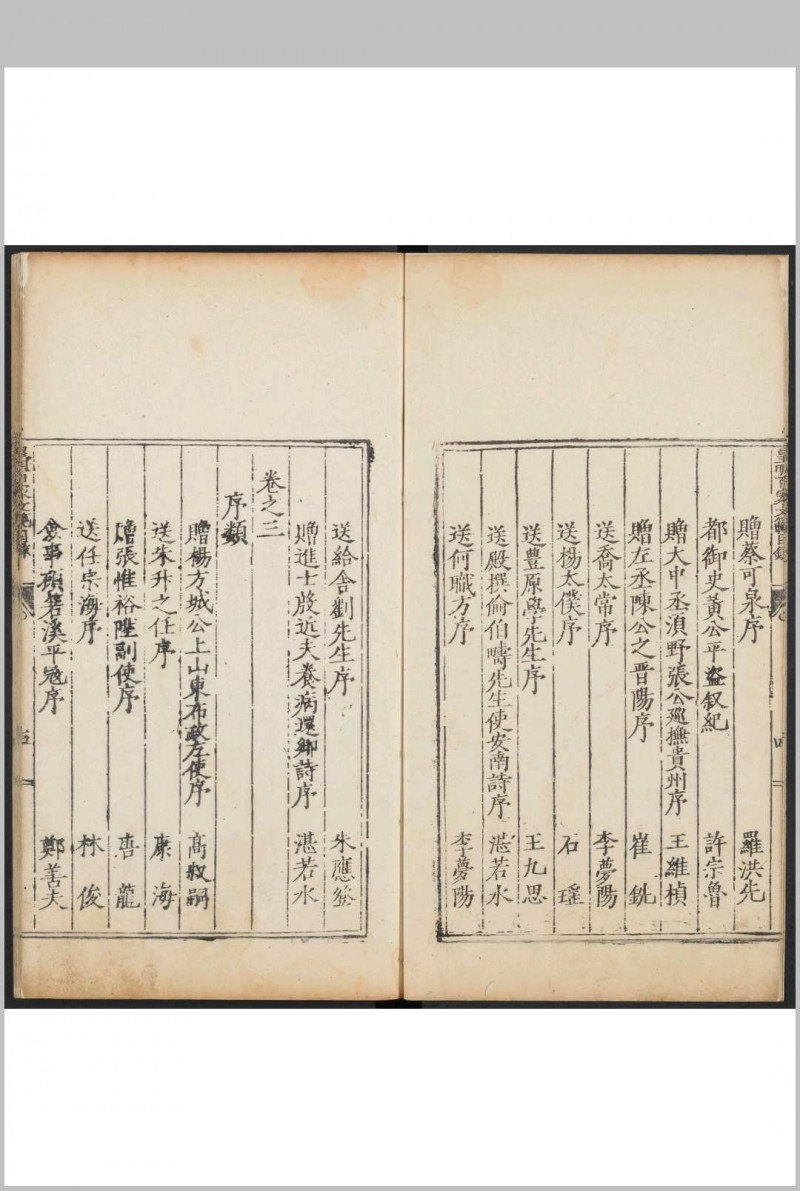 贈蔡可泉序 羅洪先
都御史黃公平盗叙紀 許宗魯
贈大中丞湏野張公廵撫貴州序 王維楨
贈左丞陳公之晋陽序 崔銑
送喬太常序 李夢陽
送楊太僕序 石瑤
送豊原學先生序 王九思
送殿撰倫伯疇先生使安南詩序 湛若水
送何職方序 李夢陽
送給舎劉先生序 朱應登
贈進士殷近夫養病還鄉詩序 湛若水
卷之三
序類
贈楊方城公上山東布政左使序 高叔嗣
送宋升之任序 康海
贈張惟裕陞副使序 唐龍
送任宗海序 林俊
僉事顧箬溪平冦序 鄭善夫